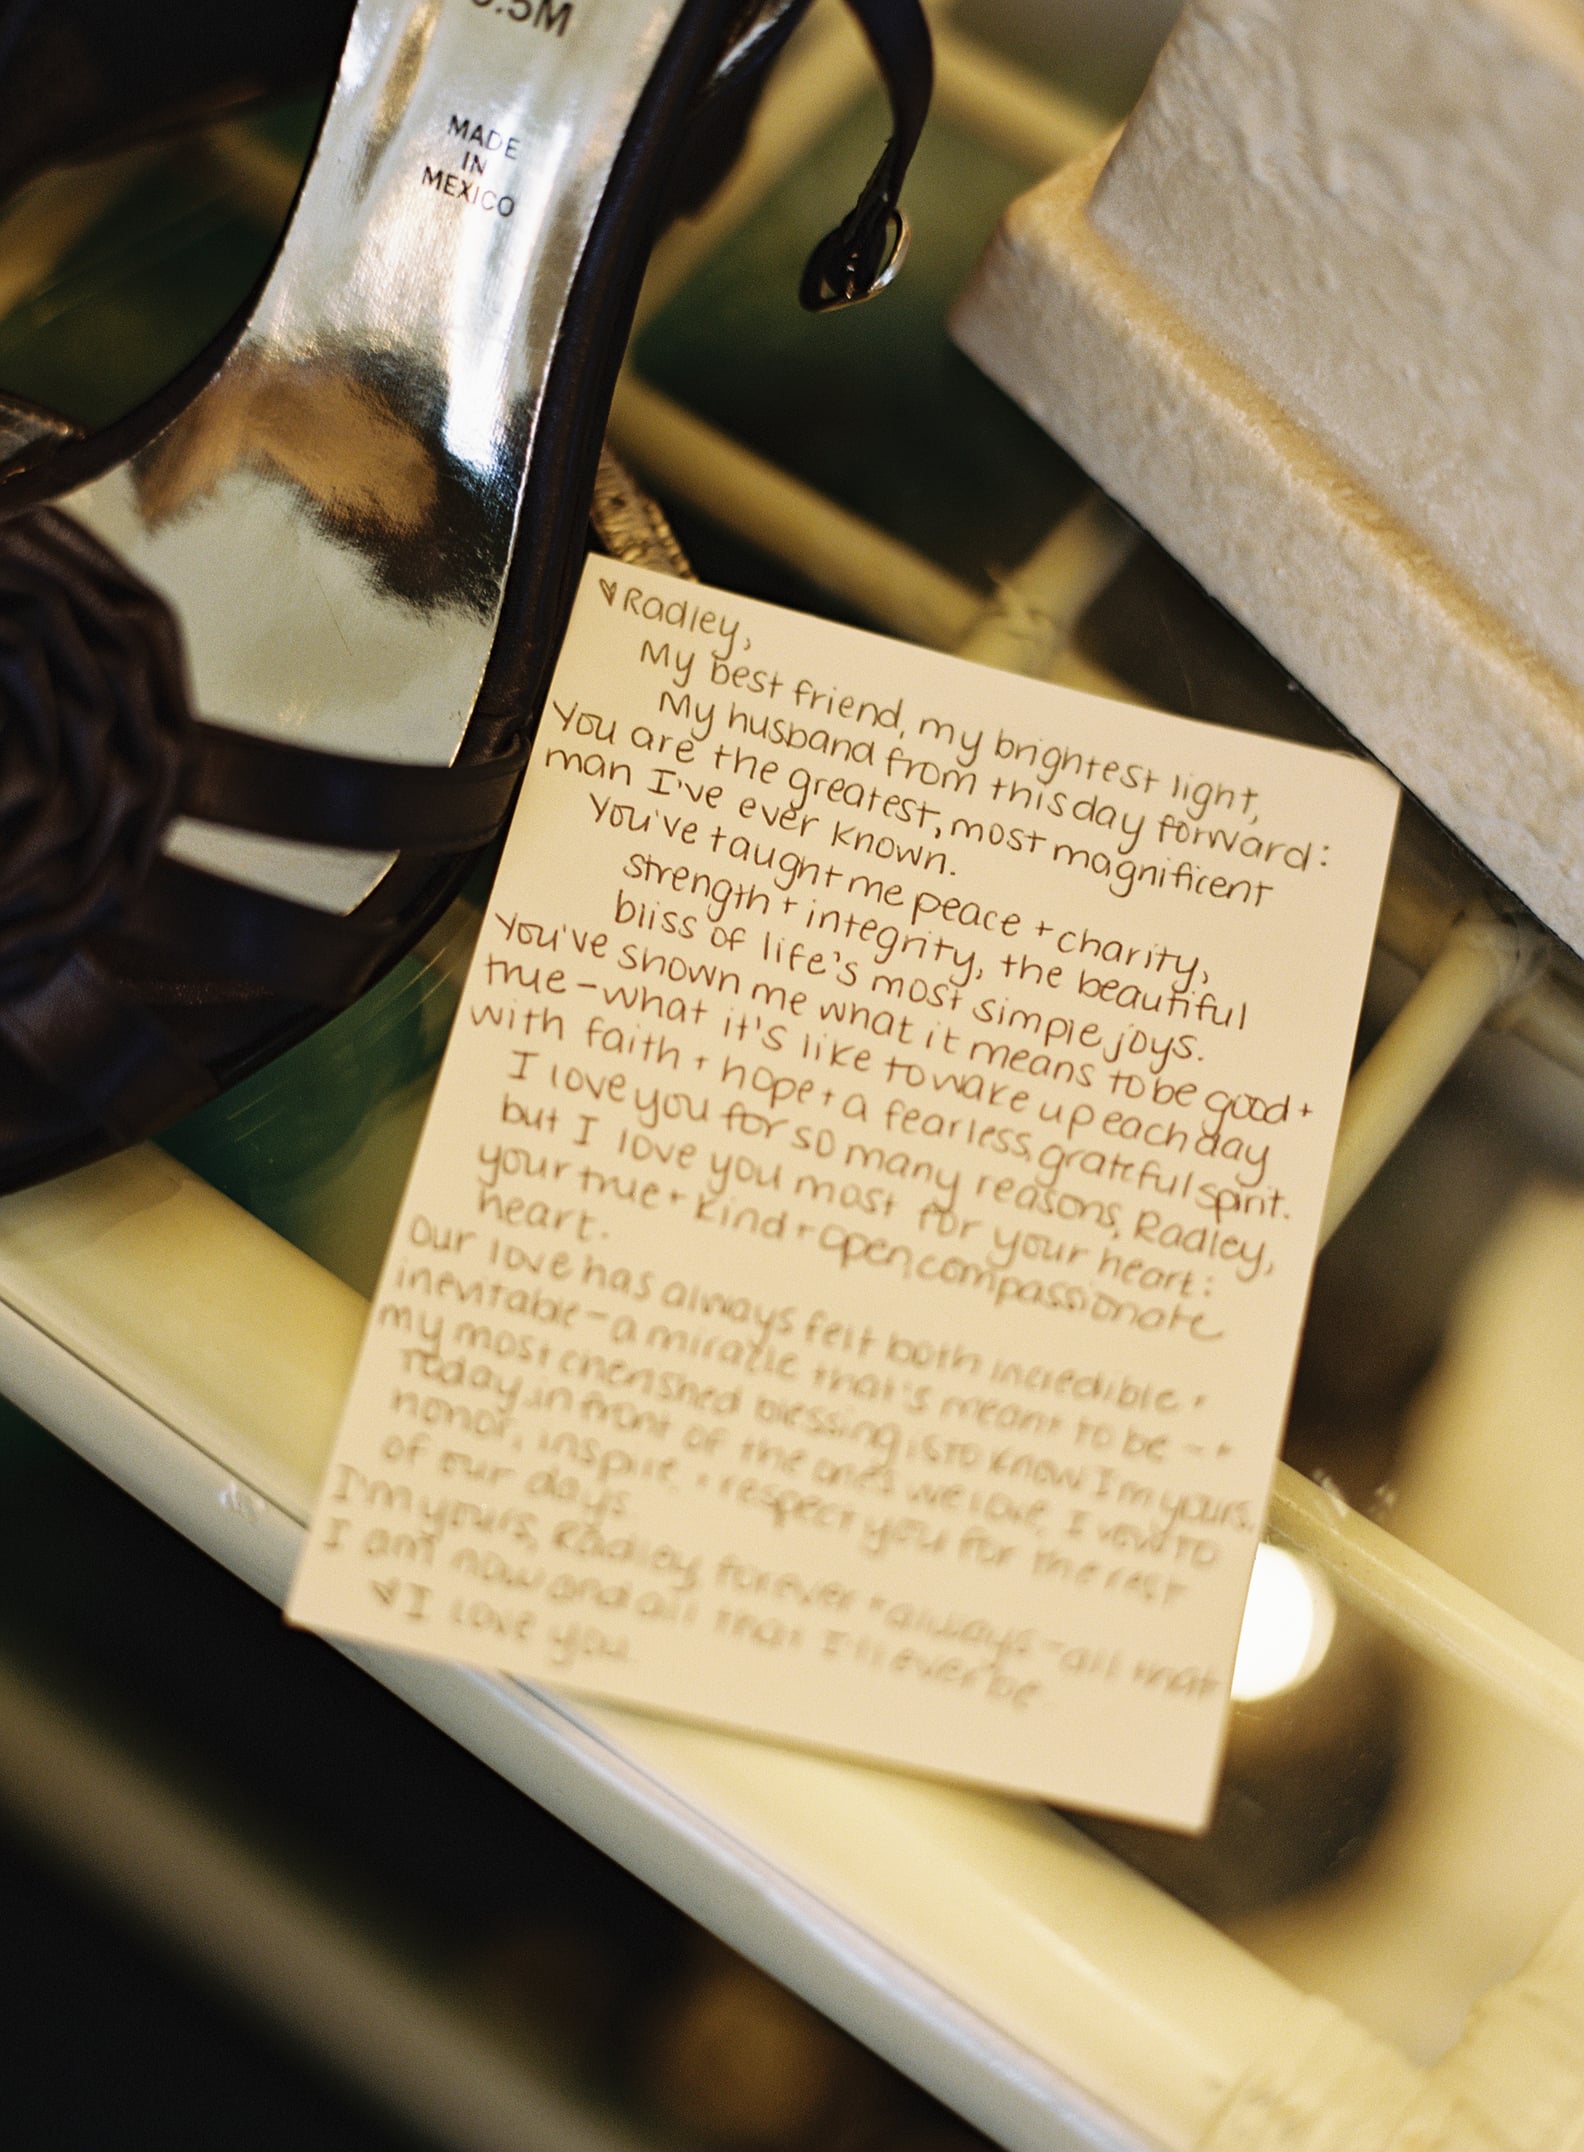 .5M
MADE
IN
MEXICO
♥Radley,
My best friend, my brightest light,
My husband from this day forward:
You are the greatest, most magnificent
man I've ever known.
You've taught me peace + charity,
strength + integrity, the beautiful
bliss of life's most simple joys.
You've shown me what it means to be good +
true - what it's like to wake up each day
with faith + hope + a fearless, grateful spirit.
I love you for so many reasons, Radley,
but I love you most for your heart:
your true + kind + open, compassionate
heart.
Our love has always felt both incredible +
inevitable - a miracle that's meant to be - +
my most cherished blessing is to know I'm yours.
Today, in front of the ones we love, I vow to
honor, inspire, + respect you for the rest
of our days.
I'm yours, Radley, forever + always - all that
I am now and all that I'll ever be.
♥I love you.